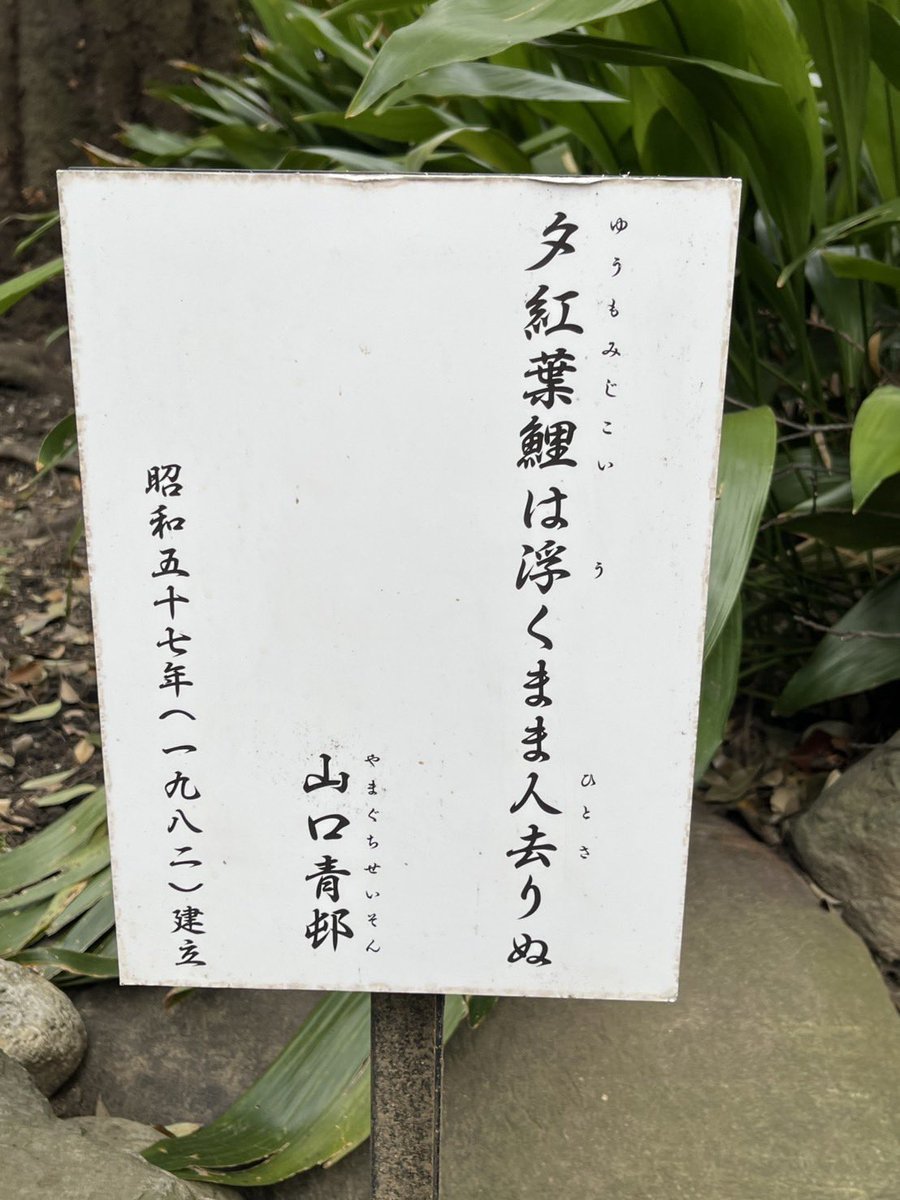 夕紅葉鯉は浮くまま人去りぬ
ゆうもみじこい う ひとさ
山口青邨
やまぐちせいそん
昭和五十七年(一九八二)建立